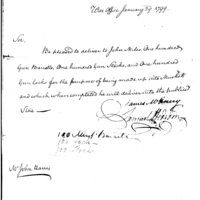 War Office January 29 1799.
Sir.
Be pleased to deliver to John Miles One hundred
Gun Barrels, One hundred Gun Stocks and One hundred
Gun Locks for the purpose of being made up into Muskets
and which when completed he will deliver into the public
Store
James McHenry
Samuel Hodgdon
100
Mr John Harris